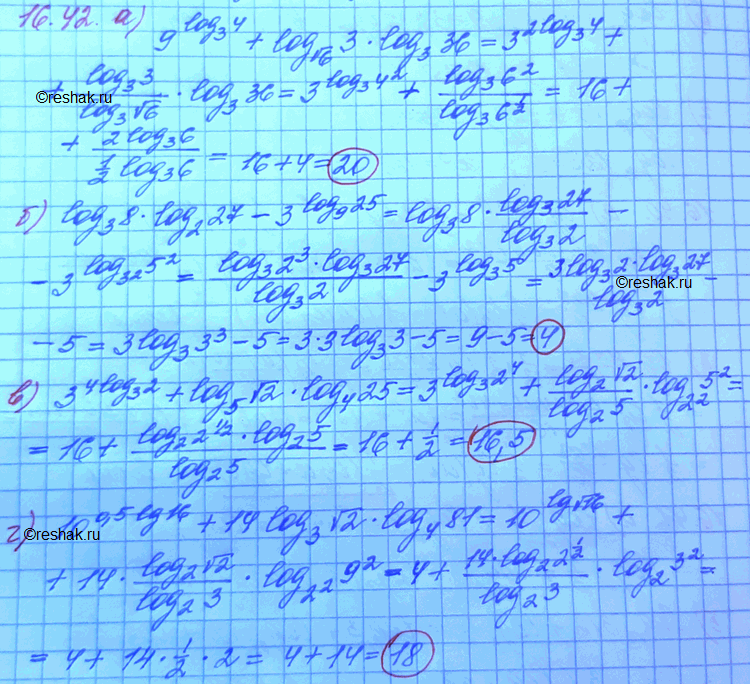 16.42. а)
9^{log_3 4} + log_{√6} 3 · log_3 36 = 3^{2 log_3 4} +
+ \frac{log_3 3}{log_3 √6} · log_3 36 = 3^{log_3 4^2} + \frac{log_3 6^2}{log_3 6^{\frac{1}{2}}} = 16 +
©reshak.ru
+ \frac{2 log_3 6}{\frac{1}{2} log_3 6} = 16 + 4 = 20
б) log_3 8 · log_2 27 − 3^{log_9 25} = log_3 8 · \frac{log_3 27}{log_3 2} −
− 3^{log_{3^2} 5^2} = \frac{log_3 2^3 · log_3 27}{log_3 2} − 3^{log_3 5} = \frac{3 log_3 2 · log_3 27}{log_3 2} −
©reshak.ru
− 5 = 3 log_3 3^3 − 5 = 3 · 3 log_3 3 − 5 = 9 − 5 = 4
в) 3^{4 log_3 2} + log_5 √2 · log_4 25 = 3^{log_3 2^4} + \frac{log_2 √2}{log_2 5} · log_{2^2} 5^2 =
= 16 + \frac{log_2 2^{1/2} · log_2 5}{log_2 5} = 16 + \frac{1}{2} = 16,5
г) 10^{0,5 lg 16} + 14 log_3 √2 · log_4 81 = 10^{lg √16} +
©reshak.ru
+ 14 · \frac{log_2 √2}{log_2 3} · log_{2^2} 9^2 = 4 + \frac{14 · log_2 2^{\frac{1}{2}}}{log_2 3} · log_2 3^2 =
= 4 + 14 · \frac{1}{2} · 2 = 4 + 14 = 18